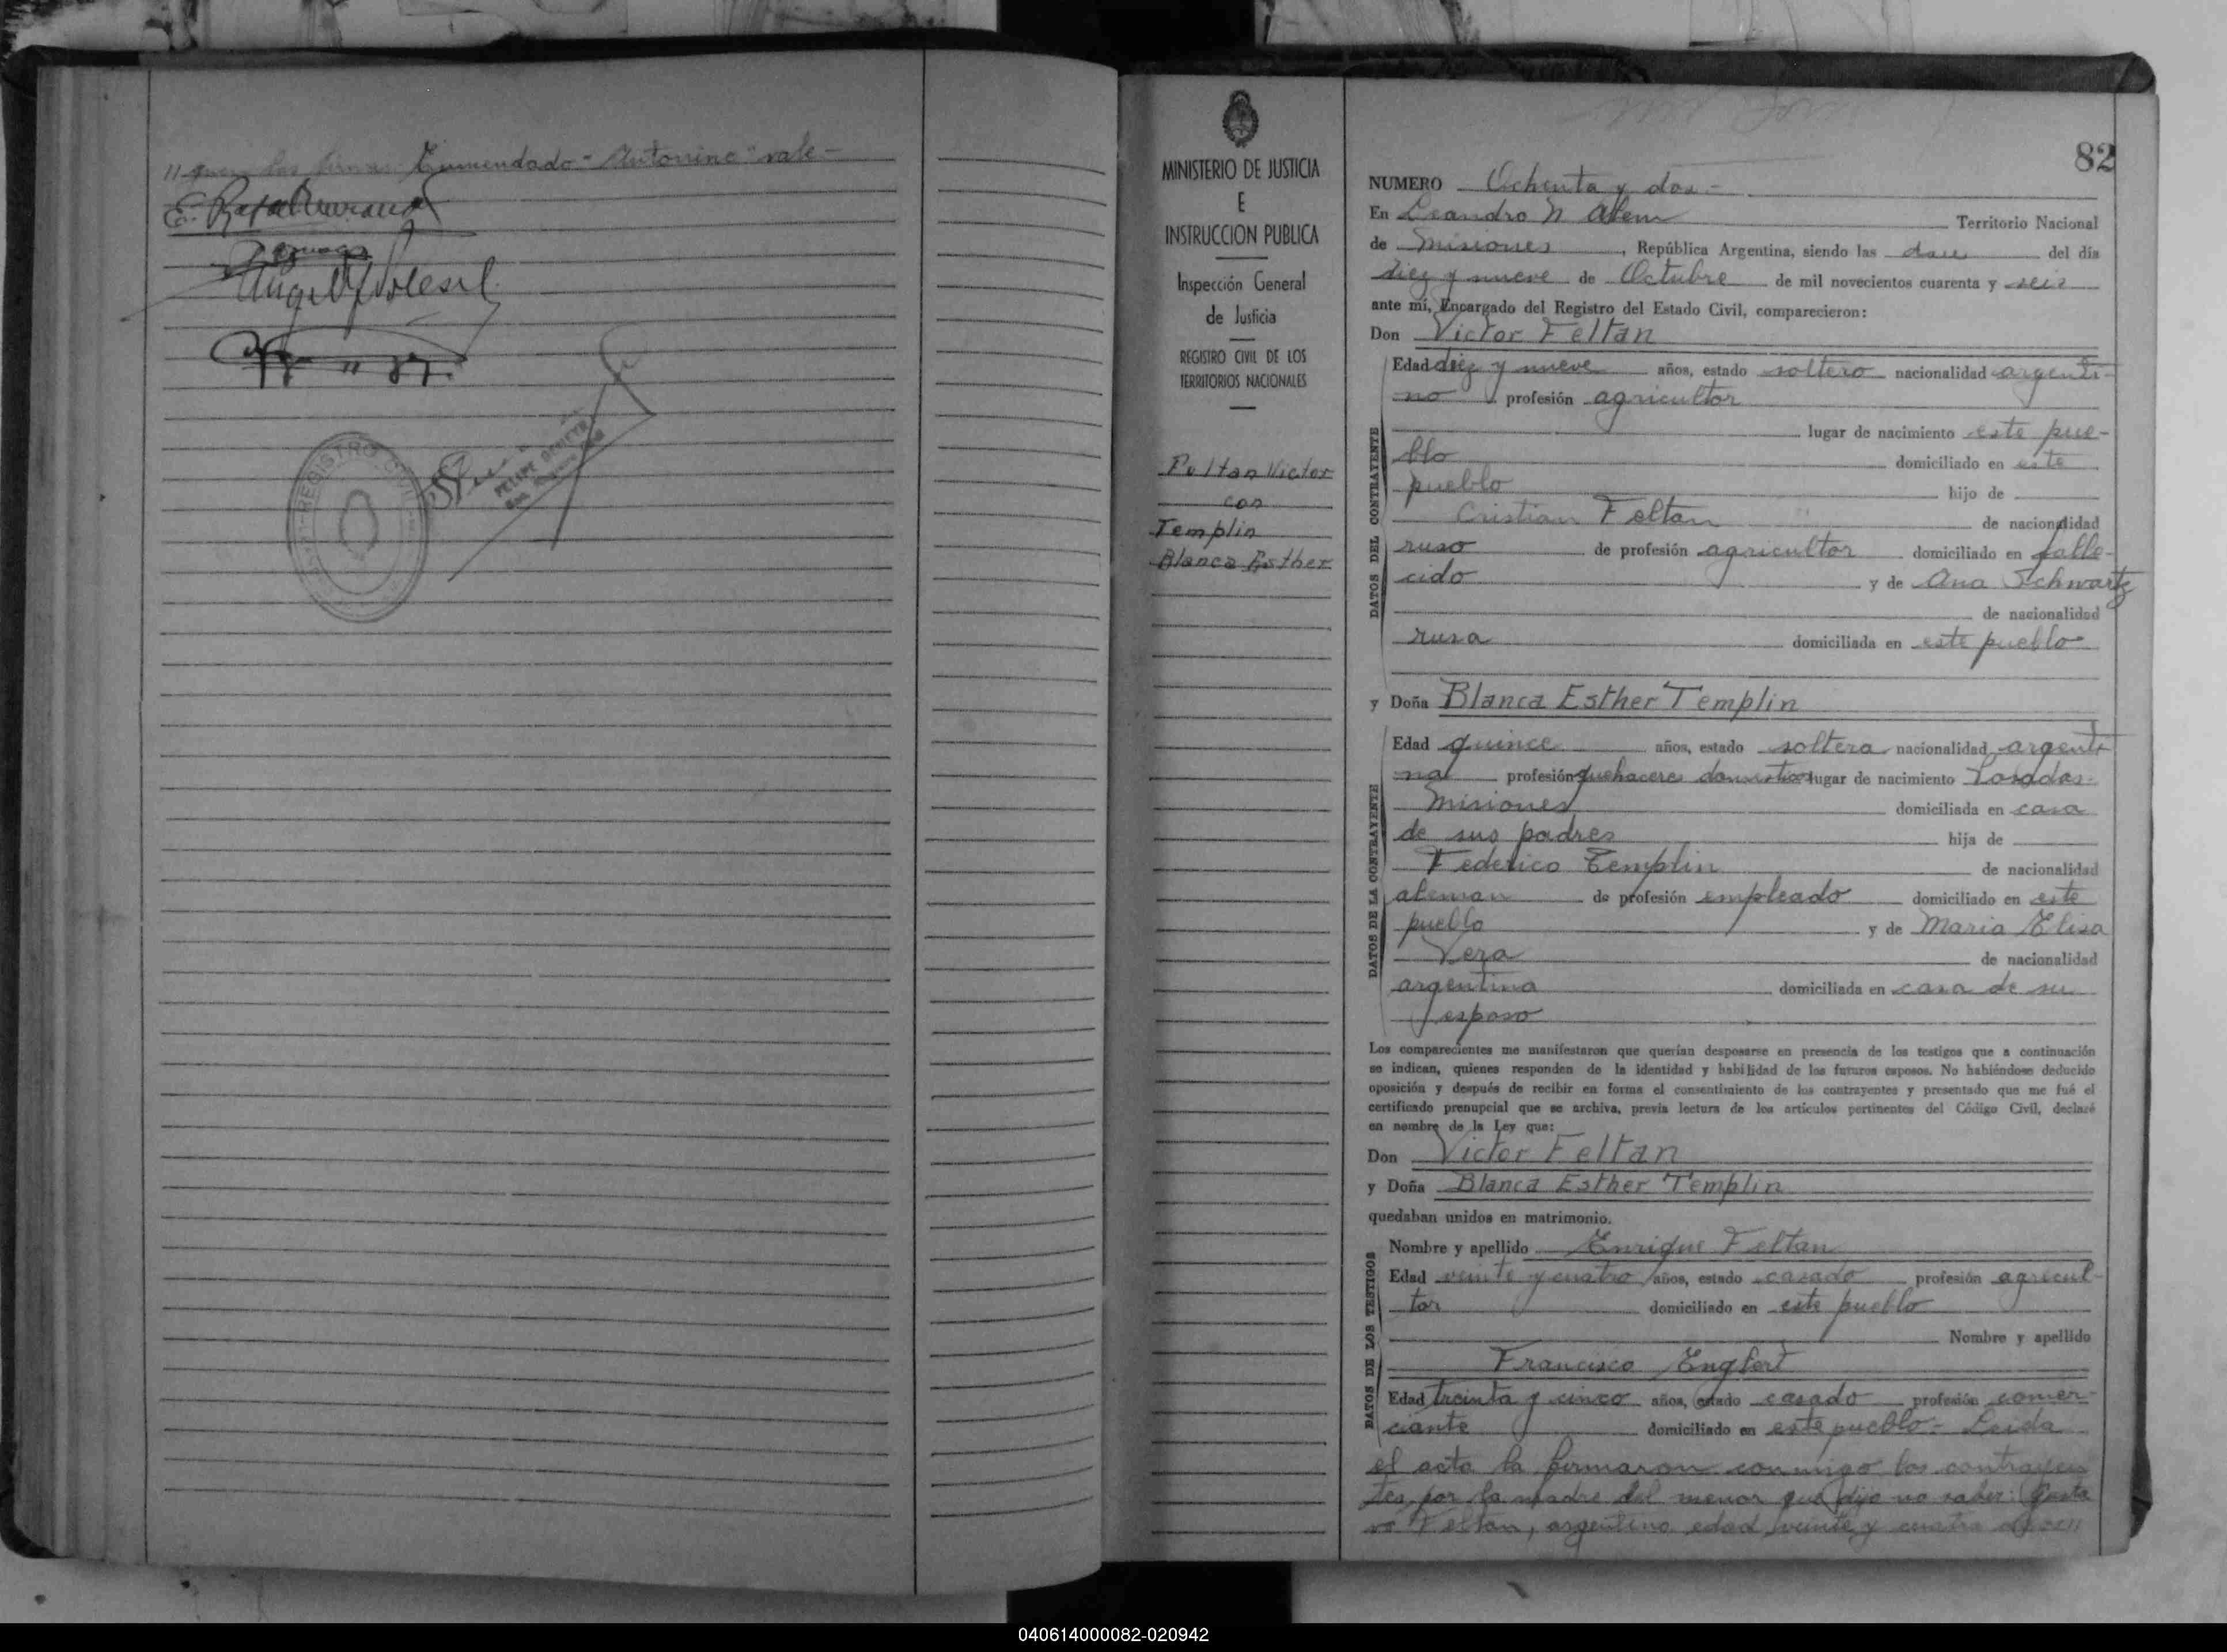 Enmendado - Antonino - vale -
REGISTRO CIVIL
82
MINISTERIO DE JUSTICIA
E
INSTRUCCION PUBLICA
Inspección General
de Justicia
REGISTRO CIVIL DE LOS
TERRITORIOS NACIONALES
Feltan Victor
con
Templin
Blanca Esther
NUMERO Ochenta y dos -
En Leandro N Alem Territorio Nacional
de Misiones, República Argentina, siendo las doce del día
diez y nueve de Octubre de mil novecientos cuarenta y seis
ante mí, Encargado del Registro del Estado Civil, comparecieron:
Don Victor Feltan
DATOS DEL CONTRAYENTE
Edad diez y nueve años, estado soltero nacionalidad argenti-
no profesión agricultor
lugar de nacimiento este pue-
blo domiciliado en este
pueblo hijo de
Cristian Feltan de nacionalidad
ruso de profesión agricultor domiciliado en falle-
cido y de Ana Schwartz
de nacionalidad
rusa domiciliada en este pueblo
y Doña Blanca Esther Templin
DATOS DE LA CONTRAYENTE
Edad quince años, estado soltera nacionalidad argenti
na profesión quehaceres domesticos lugar de nacimiento Posadas-
Misiones domiciliada en casa
de sus padres hija de
Federico Templin de nacionalidad
aleman de profesión empleado domiciliado en este
pueblo y de Maria Elisa
Vera de nacionalidad
argentina domiciliada en casa de su
esposo
Los comparecientes me manifestaron que querían desposarse en presencia de los testigos que a continuación
se indican, quienes responden de la identidad y habilidad de los futuros esposos. No habiéndose deducido
oposición y después de recibir en forma el consentimiento de los contrayentes y presentado que me fué el
certificado prenupcial que se archiva, previa lectura de los artículos pertinentes del Código Civil, declaré
en nombre de la Ley que:
Don Victor Feltan
y Doña Blanca Esther Templin
quedaban unidos en matrimonio.
DATOS DE LOS TESTIGOS
Nombre y apellido Enrique Feltan
Edad veinte y cuatro años, estado casado profesión agricul-
tor domiciliado en este pueblo
Nombre y apellido
Francisco Englert
Edad treinta y cinco años, estado casado profesión comer-
ciante domiciliado en este pueblo - Leida
el acta la firmaron conmigo los contrayen
tes, por la madre del menor que dijo no saber: Gusta
vo Feltan, argentino edad veinte y cuatro
040614000082-020942